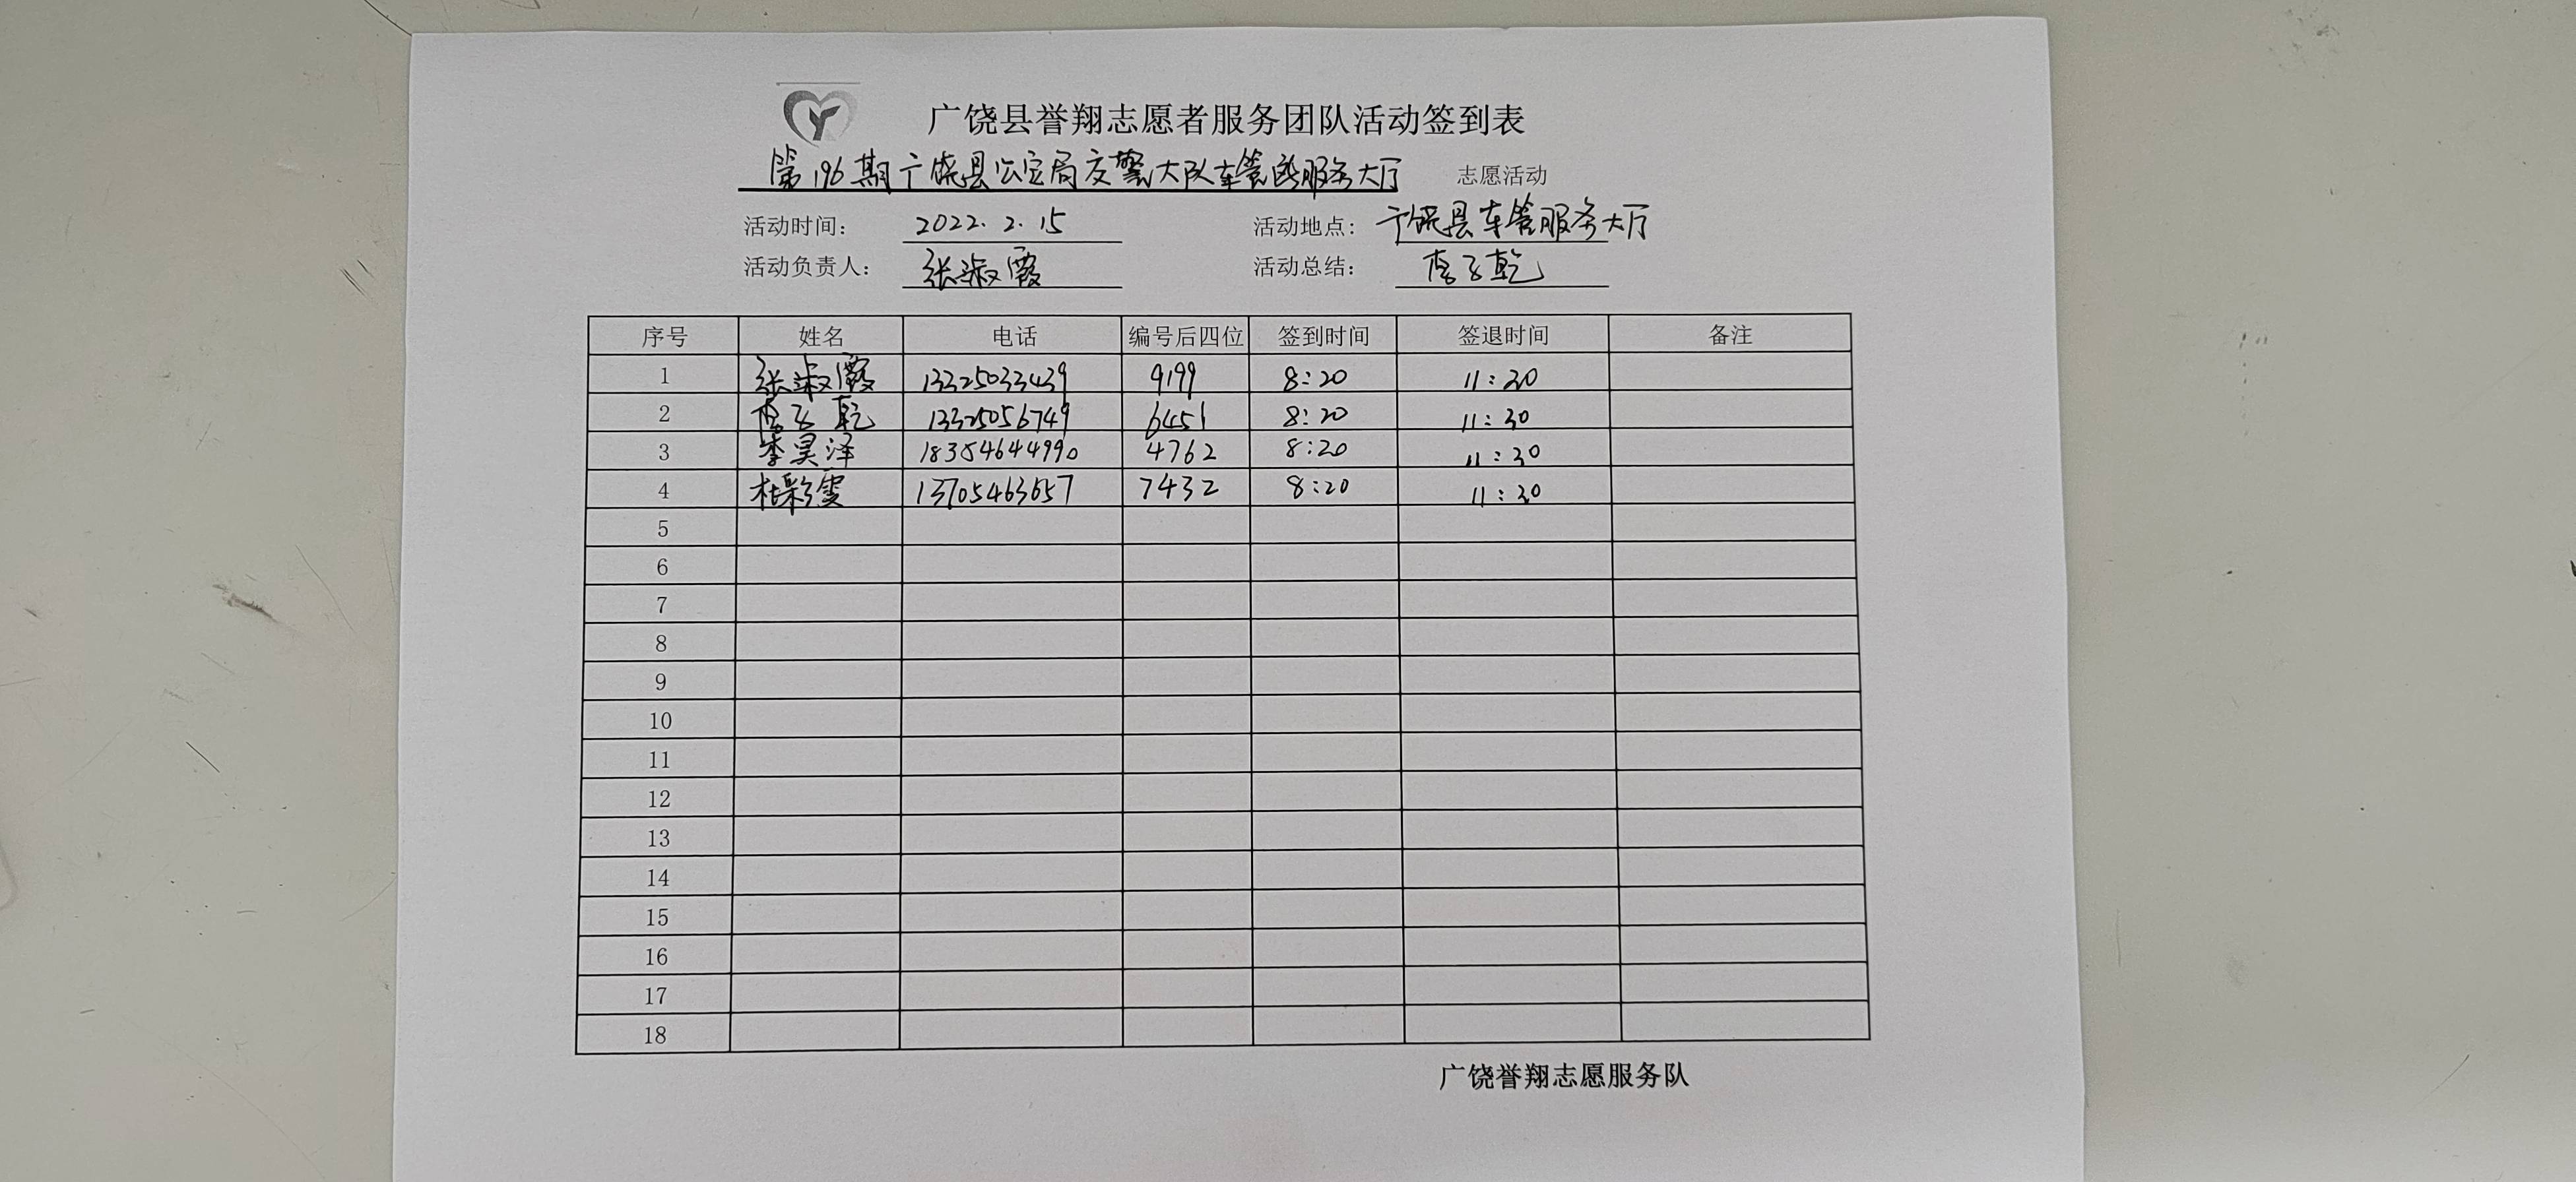 广饶县誉翔志愿者服务团队活动签到表
第196期广饶县公安局交警大队车管所服务大厅 志愿活动
活动时间: 2022.2.15 活动地点: 广饶县车管服务大厅
活动负责人: 张淑霞 活动总结:
序号 姓名 电话 编号后四位 签到时间 签退时间 备注
1 张淑霞 13325033439 9199 8:20 11:30
2 13325056749 6451 8:20 11:30
3 李昊泽 18354644990 4762 8:20 11:30
4 杜彩雯 13705463657 7432 8:20 11:30
5
6
7
8
9
10
11
12
13
14
15
16
17
18
广饶誉翔志愿服务队